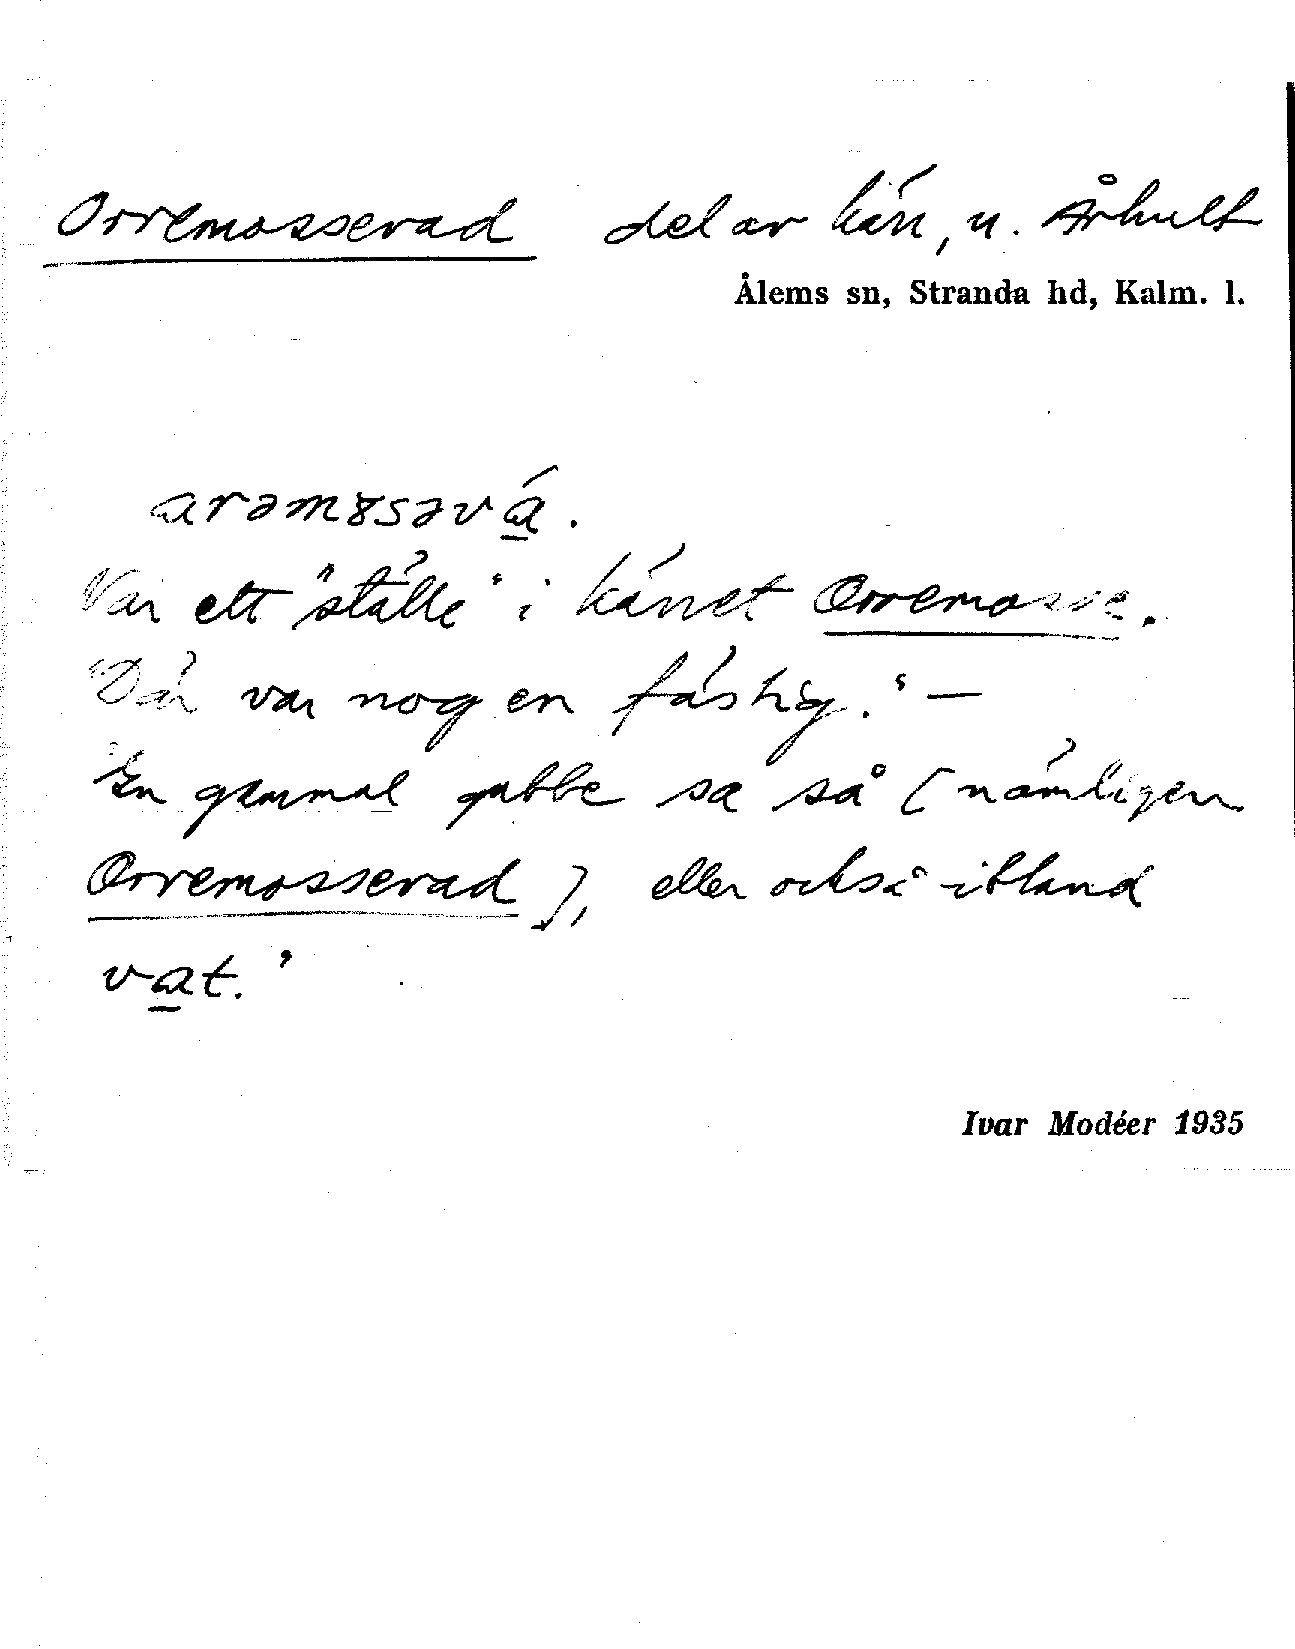 Orremosserad del av kärr, u. Århult
Ålems sn, Stranda hd, Kalm. l.
arəm8səvá.
Var ett "ställe" i kärret Orremosse.
"Där var nog en fästig." —
"En gammal gubbe sa så [nämligen
Orremosserad], eller också ibland
vat."
Ivar Modéer 1935